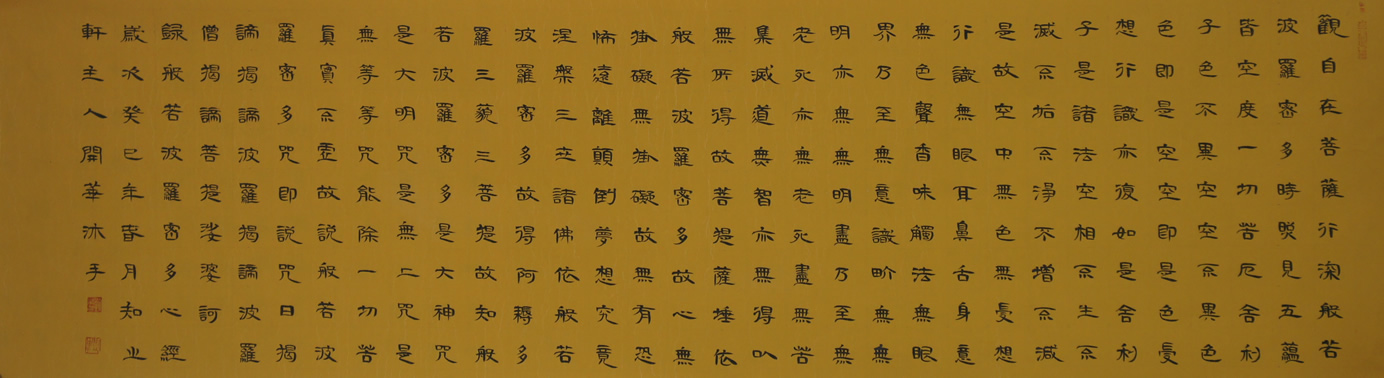 觀自在菩薩行深般若
波羅密多時照見五蘊
皆空度一切苦厄舍利
子色不異空空不異色
色即是空空即是色受
想行識亦復如是舍利
子是諸法空相不生不
滅不垢不淨不增不減
是故空中無色無受想
行識無眼耳鼻舌身意
無色聲香味觸法無眼
界乃至無意識界無無
明亦無無明盡乃至無
老死亦無老死盡無苦
集滅道無智亦無得以
無所得故菩提薩埵依
般若波羅密多故心無
掛礙無掛礙故無有恐
怖遠離顛倒夢想究竟
涅槃三世諸佛依般若
波羅密多故得阿耨多
羅三藐三菩提故知般
若波羅密多是大神咒
是大明咒是無上咒是
無等等咒能除一切苦
真實不虛故說般若波
羅密多咒即說咒曰揭
諦揭諦波羅揭諦波羅
僧揭諦菩提娑婆訶
錄般若波羅密多心經
歲次癸巳年春月知止
軒主人開華沐手